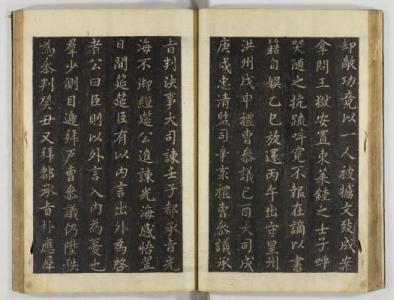 却敵功竟以一人被擄文致成案
拿問王獄安置東萊鍾之士子呼
哭隨之抗疏呼冤不報在謫以書
籍自娛乙巳放還丙午出守星州
洪州戊申禮曹參議己酉大司成
庚戌忠清監司辛亥禮曹參議承
旨判決事大司諫壬子都承旨光
海不御經筵公進諫光海感悟翌
日開筵筵臣有以內言出外為啓
者公曰臣則以外言入內為憂也
羣少測目遞拜戶曹參議仍陞秩
為參判癸丑又拜都承旨朴應犀